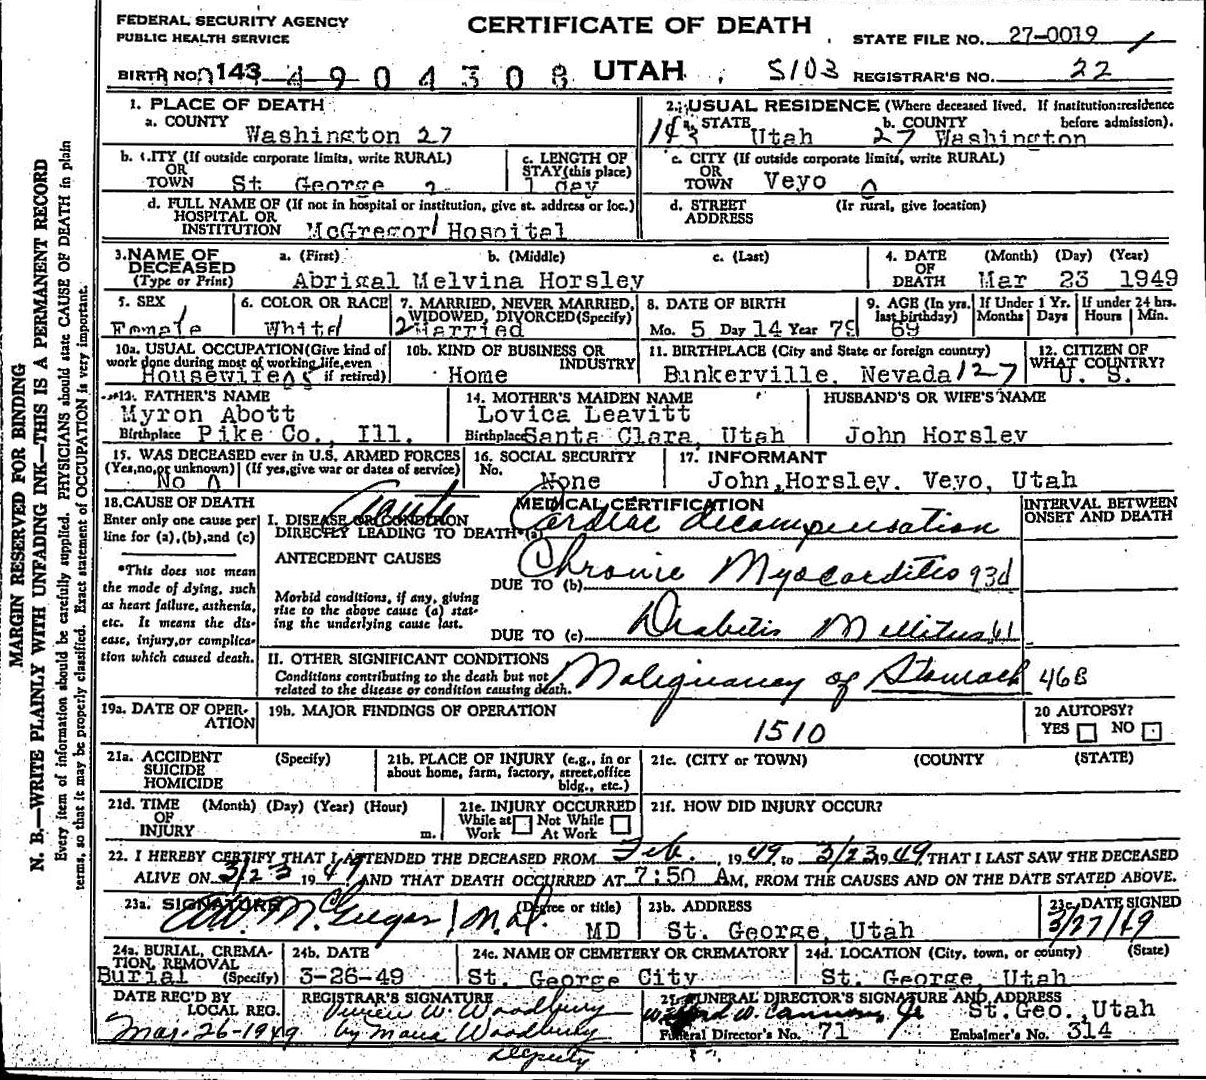 FEDERAL SECURITY AGENCY
PUBLIC HEALTH SERVICE
CERTIFICATE OF DEATH
STATE FILE NO. 27-0019
BIRTH NO. 143 4904308 UTAH S103 REGISTRAR'S NO. 22
MARGIN RESERVED FOR BINDING
N. B.—WRITE PLAINLY WITH UNFADING INK—THIS IS A PERMANENT RECORD
Every item of information should be carefully supplied. PHYSICIANS should state CAUSE OF DEATH in plain
terms, so that it may be properly classified. Exact statement of OCCUPATION is very important.
1. PLACE OF DEATH
a. COUNTY
Washington 27
2. USUAL RESIDENCE (Where deceased lived. If institution:residence
before admission).
a. STATE b. COUNTY
143 Utah 27 Washington
b. CITY (If outside corporate limits, write RURAL)
OR
TOWN St George 2
c. LENGTH OF
STAY(this place)
1 day
c. CITY (If outside corporate limits, write RURAL)
OR
TOWN Veyo 0
d. FULL NAME OF (If not in hospital or institution, give st. address or loc.)
HOSPITAL OR
INSTITUTION McGregor Hospital
d. STREET (If rural, give location)
ADDRESS
3.NAME OF
DECEASED
(Type or Print)
a. (First) b. (Middle) c. (Last)
Abrigal Melvina Horsley
4. DATE (Month) (Day) (Year)
OF
DEATH Mar 23 1949
5. SEX
Female
6. COLOR OR RACE
White
7. MARRIED, NEVER MARRIED,
WIDOWED, DIVORCED(Specify)
2 Married
8. DATE OF BIRTH
Mo. 5 Day 14 Year 79
9. AGE (In yrs.
last birthday)
69
If Under 1 Yr.
Months Days
If under 24 hrs.
Hours Min.
10a. USUAL OCCUPATION(Give kind of
work done during most of working life,even
if retired)
Housewife
10b. KIND OF BUSINESS OR
INDUSTRY
Home
11. BIRTHPLACE (City and State or foreign country)
Bunkerville, Nevada 127
12. CITIZEN OF
WHAT COUNTRY?
U. S.
13. FATHER'S NAME
Myron Abott
Birthplace Pike Co., Ill.
14. MOTHER'S MAIDEN NAME
Lovica Leavitt
Birthplace Santa Clara, Utah
HUSBAND'S OR WIFE'S NAME
John Horsley
15. WAS DECEASED ever in U.S. ARMED FORCES
(Yes,no,or unknown) (If yes,give war or dates of service)
No 0
16. SOCIAL SECURITY
No. None
17. INFORMANT
John Horsley. Veyo, Utah
18.CAUSE OF DEATH
Enter only one cause per
line for (a),(b),and (c)
*This does not mean
the mode of dying, such
as heart failure, asthenia,
etc. It means the dis-
ease, injury,or complica-
tion which caused death.
MEDICAL CERTIFICATION
INTERVAL BETWEEN
ONSET AND DEATH
I. DISEASE OR CONDITION
DIRECTLY LEADING TO DEATH*(a) Acute Cardiac decompensation
ANTECEDENT CAUSES
DUE TO (b) Chronic Myocarditis 93d
Morbid conditions, if any, giving
rise to the above cause (a) stat-
ing the underlying cause last.
DUE TO (c) Diabetis Mellitus 61
II. OTHER SIGNIFICANT CONDITIONS
Conditions contributing to the death but not
related to the disease or condition causing death.
Malignancy of Stomach 46B
19a. DATE OF OPER-
ATION
19b. MAJOR FINDINGS OF OPERATION
1510
20 AUTOPSY?
YES NO
21a. ACCIDENT (Specify)
SUICIDE
HOMICIDE
21b. PLACE OF INJURY (e.g., in or
about home, farm, factory, street,office
bldg., etc.)
21c. (CITY or TOWN) (COUNTY) (STATE)
21d. TIME (Month) (Day) (Year) (Hour)
OF
INJURY m.
21e. INJURY OCCURRED
While at Not While
Work At Work
21f. HOW DID INJURY OCCUR?
22. I HEREBY CERTIFY THAT I ATTENDED THE DECEASED FROM Feb., 1949 to 3/23 1949 THAT I LAST SAW THE DECEASED
ALIVE ON 3/23 1949 AND THAT DEATH OCCURRED AT 7:50 AM, FROM THE CAUSES AND ON THE DATE STATED ABOVE.
23a. SIGNATURE (Degree or title)
McGregor M.D. MD
23b. ADDRESS
St. George, Utah
23c. DATE SIGNED
3/27/49
24a. BURIAL, CREMA-
TION, REMOVAL
(Specify)
Burial
24b. DATE
3-26-49
24c. NAME OF CEMETERY OR CREMATORY
St. George City
24d. LOCATION (City, town, or county) (State)
St. George, Utah
DATE REC'D BY
LOCAL REG.
Mar. 26-1949
REGISTRAR'S SIGNATURE
W. Woodbury
by Woodbury
Deputy
25. FUNERAL DIRECTOR'S SIGNATURE AND ADDRESS
W. Cannon, Jr St.Geo., Utah
Funeral Director's No. 71 Embalmer's No. 314